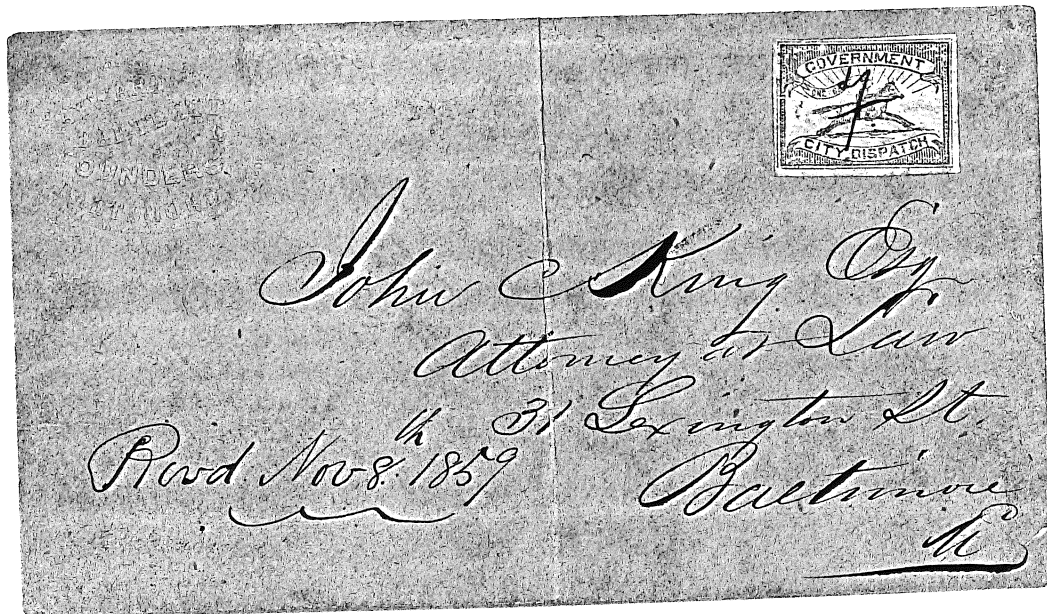 GOVERNMENT
ONE
CITY DISPATCH
John C King Esq
Attorney at Law
31 Lexington St.
Baltimore
Md
Recvd. Nov 8th 1859